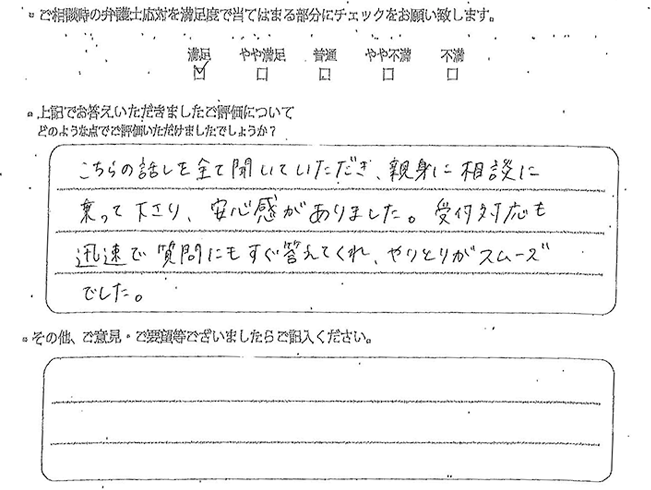 ご相談時の弁護士応対を満足度で当てはまる部分にチェックをお願い致します。
満足 やや満足 普通 やや不満 不満
上記でお答えいただきましたご評価について
どのような点でご評価いただけましたでしょうか？
こちらの話しを全て聞いていただき、親身に相談に
乗って下さり、安心感がありました。受付対応も
迅速で質問にもすぐ答えてくれ、やりとりがスムーズ
でした。
その他、ご意見・ご要望等ございましたらご記入ください。